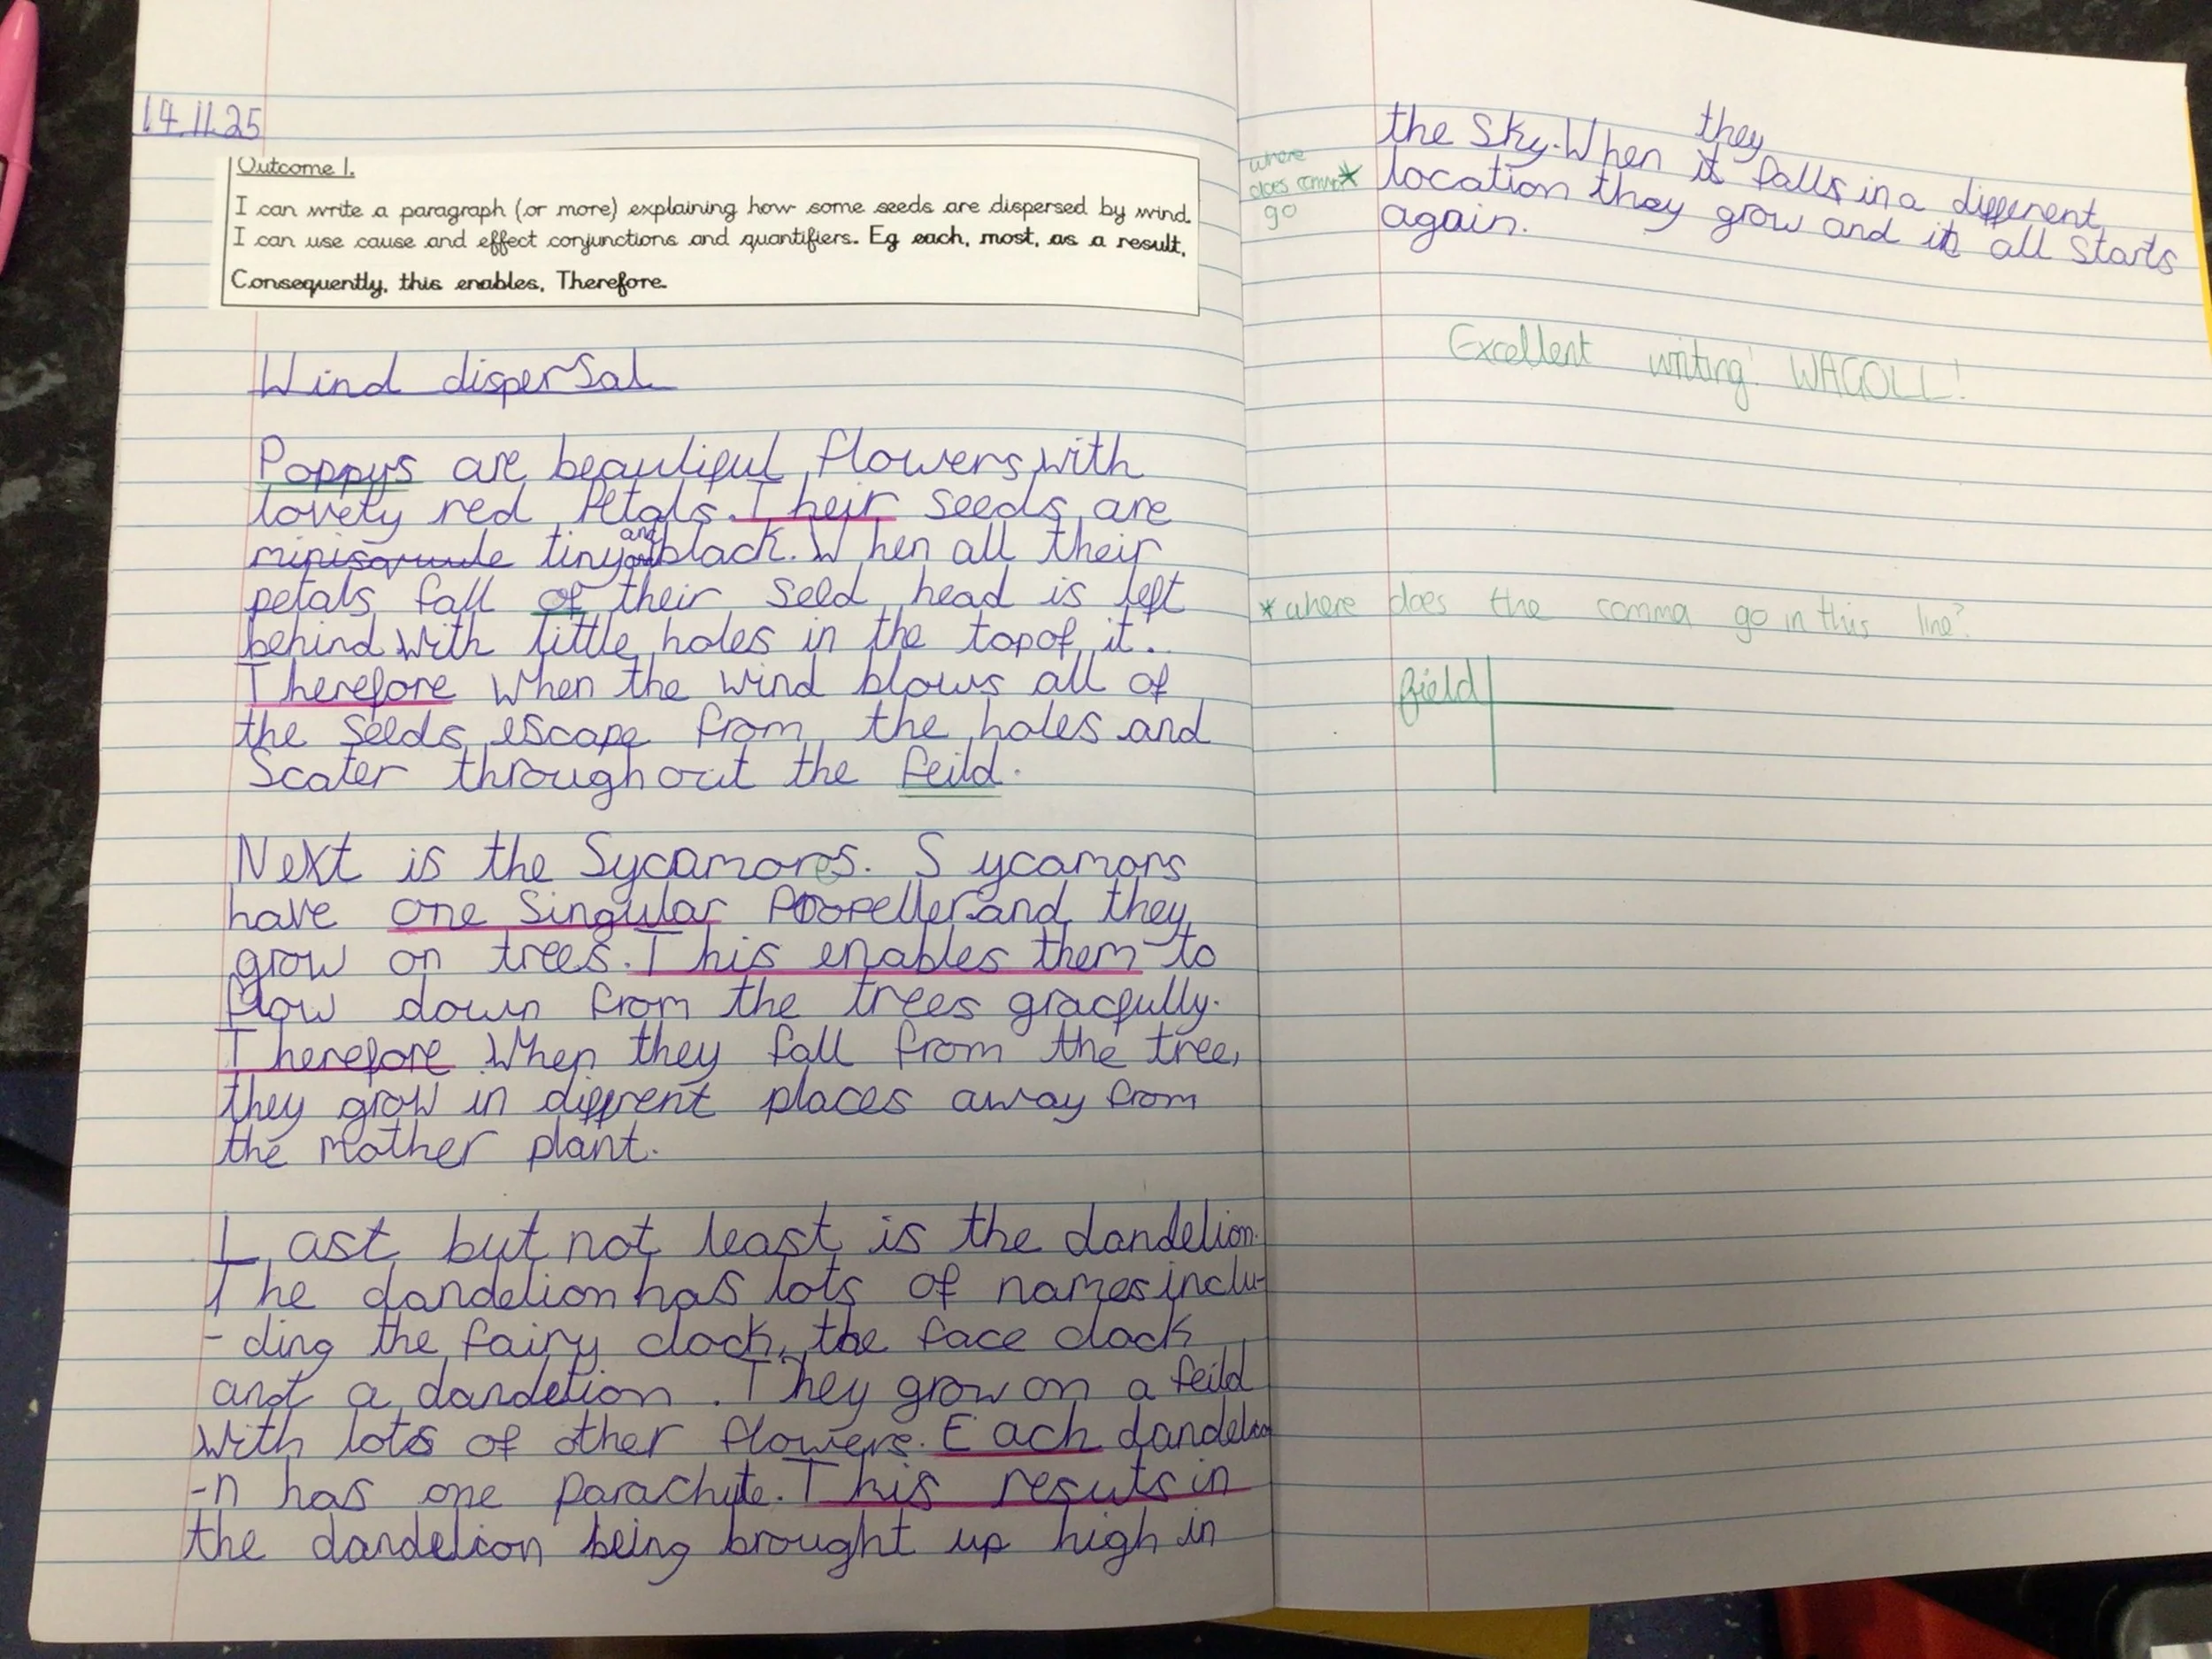 14.11.25
Outcome 1.
I can write a paragraph (or more) explaining how some seeds are dispersed by wind.
I can use cause and effect conjunctions and quantifiers. Eg each, most, as a result,
Consequently, this enables, Therefore.
Wind dispersal
Poppys are beautiful flowers with
lovely red Petals. Their seeds are
tiny and black. When all their
petals fall of their seed head is left
behind with little holes in the top of it.
Therefore when the wind blows all of
the seeds escape from the holes and
Scater throughout the feild.
Next is the Sycamores. Sycamors
have one singular Propeller and they
grow on trees. This enables them to
flow down from the trees gracfully.
Therefore when they fall from the tree,
they grow in diffrent places away from
the mother plant.
Last but not least is the dandelion.
The dandelion has lots of names inclu-
-ding the fairy clock, the face clock
and a dandelion. They grow on a feild
with lots of other flowers. Each dandelio
-n has one parachute. This resuts in
the dandelion being brought up high in
the sky. When they falls in a different
location they grow and it all starts
again.
where
does comma *
go
Excellent writing! WAGOLL!
* where does the comma go in this line?
field